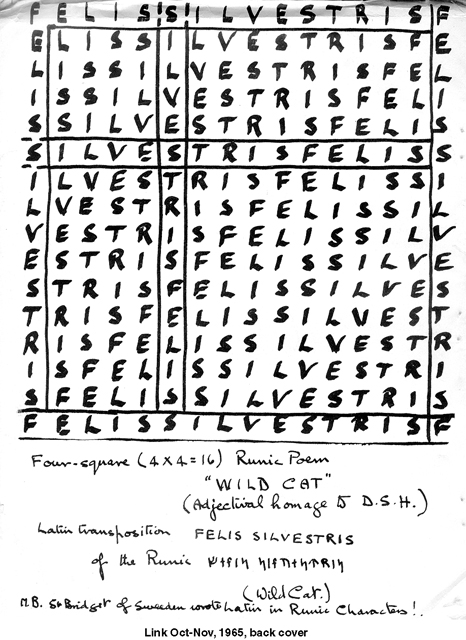 F E L I S S I L V E S T R I S F
E L I S S I L V E S T R I S F E
L I S S I L V E S T R I S F E L
I S S I L V E S T R I S F E L I
S S I L V E S T R I S F E L I S
S I L V E S T R I S F E L I S S
I L V E S T R I S F E L I S S I
L V E S T R I S F E L I S S I L
V E S T R I S F E L I S S I L V
E S T R I S F E L I S S I L V E
S T R I S F E L I S S I L V E S
T R I S F E L I S S I L V E S T
R I S F E L I S S I L V E S T R
I S F E L I S S I L V E S T R I
S F E L I S S I L V E S T R I S
F E L I S S I L V E S T R I S F
Four-square (4 X 4 = 16) Runic Poem
"WILD CAT"
(Adjectival homage to D.S.H.)
Latin transposition FELIS SILVESTRIS
of the Runic
(Wild Cat.)
N.B. St Bridget of Sweeden wrote Latin in Runic Characters!.
Link Oct-Nov, 1965, back cover